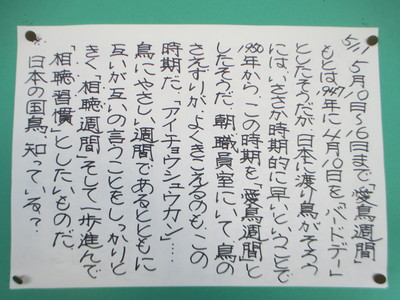 5/11
5月10日~16日まで「愛鳥週間」
もとは1947年に4月10日を「バードデー」
としたそうだが、日本に渡り鳥がそろう
には、いささか時期的に早いということで
1950年から、この時期を「愛鳥週間」と
したそうだ。朝、職員室にいて、鳥の
さえずりが、よくきこえるのも、この
時期だ。「アイチョウシュウカン」……
鳥にやさしい週間であるとともに
互いが互いの言うことをしっかりと
きく「相聴週間」そして一歩進んで
「相聴習慣」としたいものだ。
日本の国鳥、知っている?